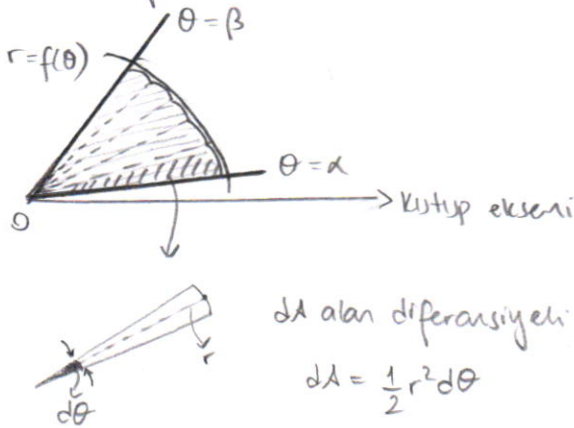 θ = β
r = f(θ)
θ = α
O
Kutup ekseni
dA alan diferansiyeli
r
dA = 1/2 r² dθ
dθ